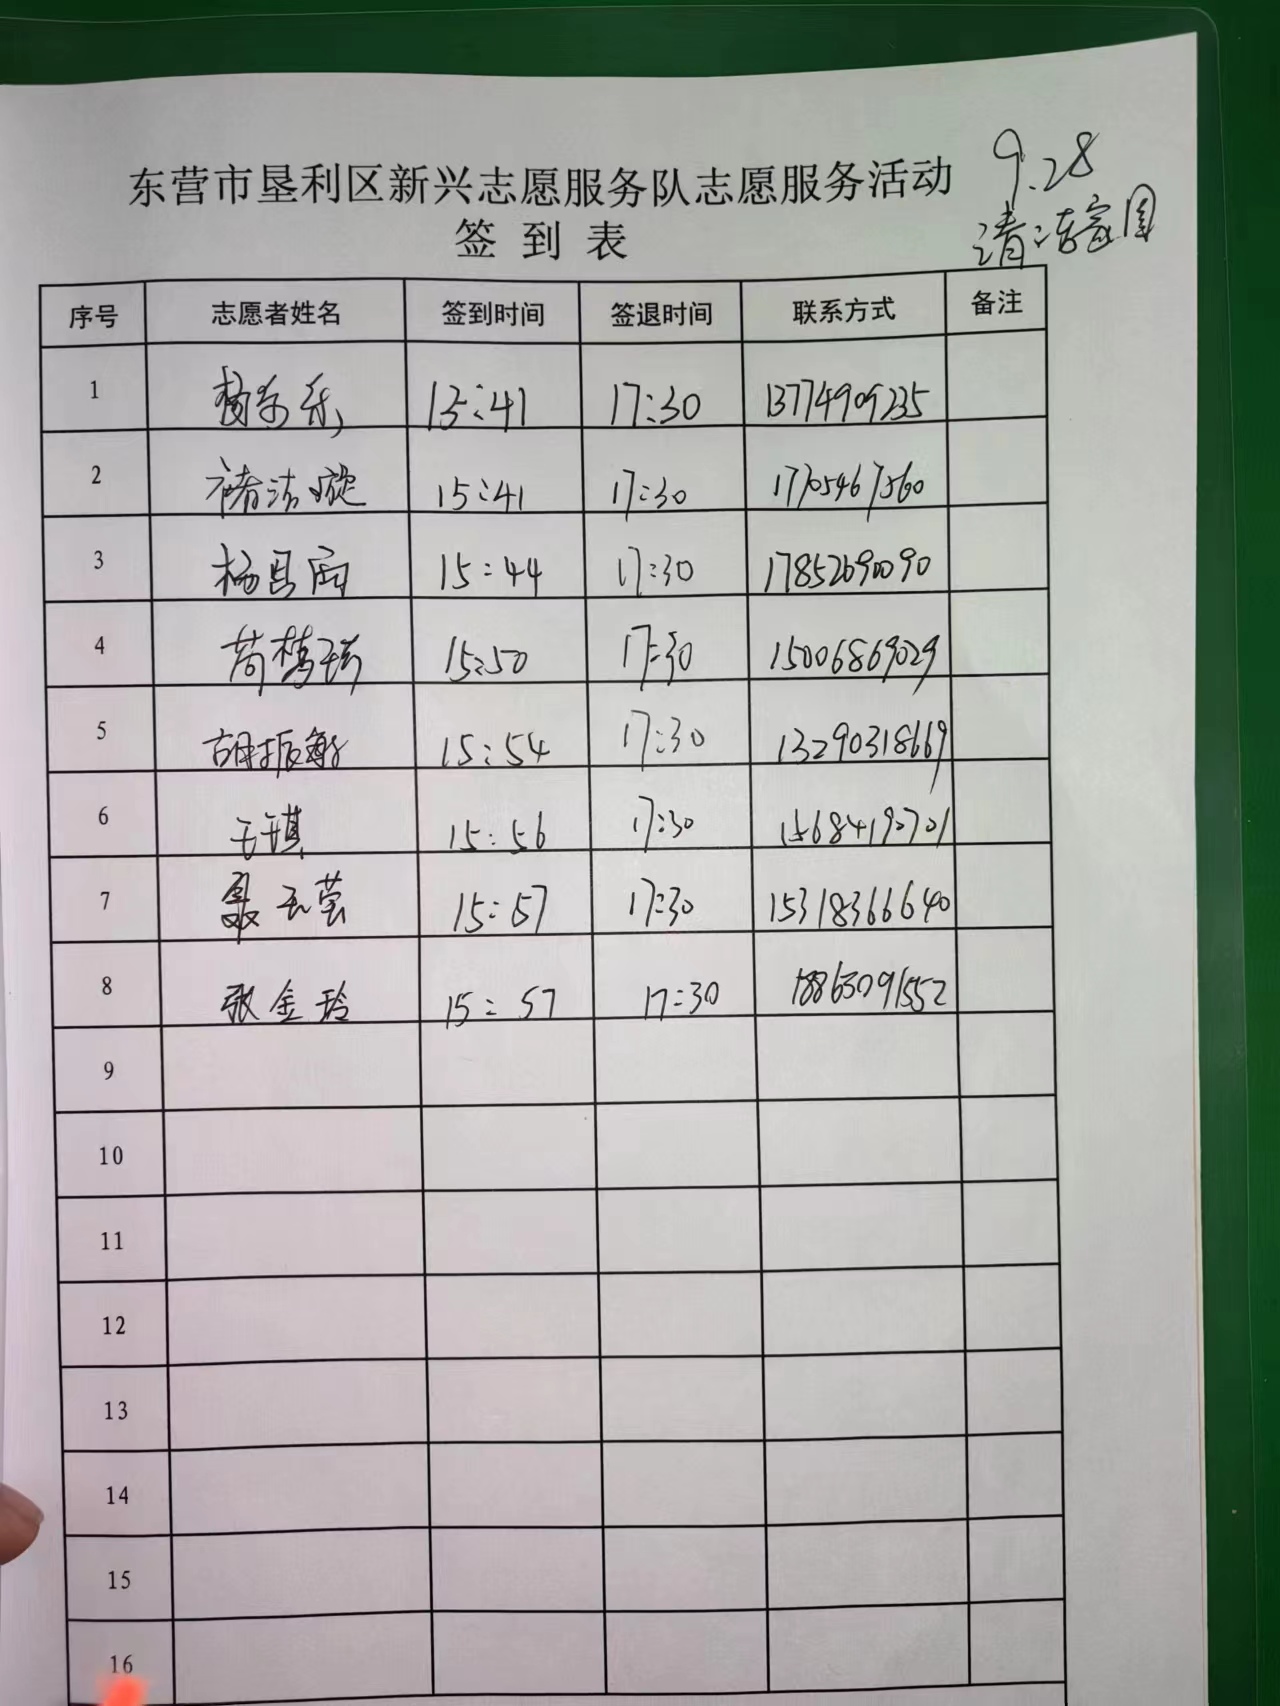 9.28
东营市垦利区新兴志愿服务队志愿服务活动
清洁家园
签到表
序号 志愿者姓名 签到时间 签退时间 联系方式 备注
1 15:41 17:30 13774909235
2 15:41 17:30 17705467560
3 杨 15:44 17:30 17852690090
4 15:50 17:30 15006869029
5 胡振 15:54 17:30 13290318669
6 15:56 17:30 15684190701
7 聂玉莹 15:57 17:30 15318366640
8 张金玲 15:57 17:30 18863091552
9
10
11
12
13
14
15
16